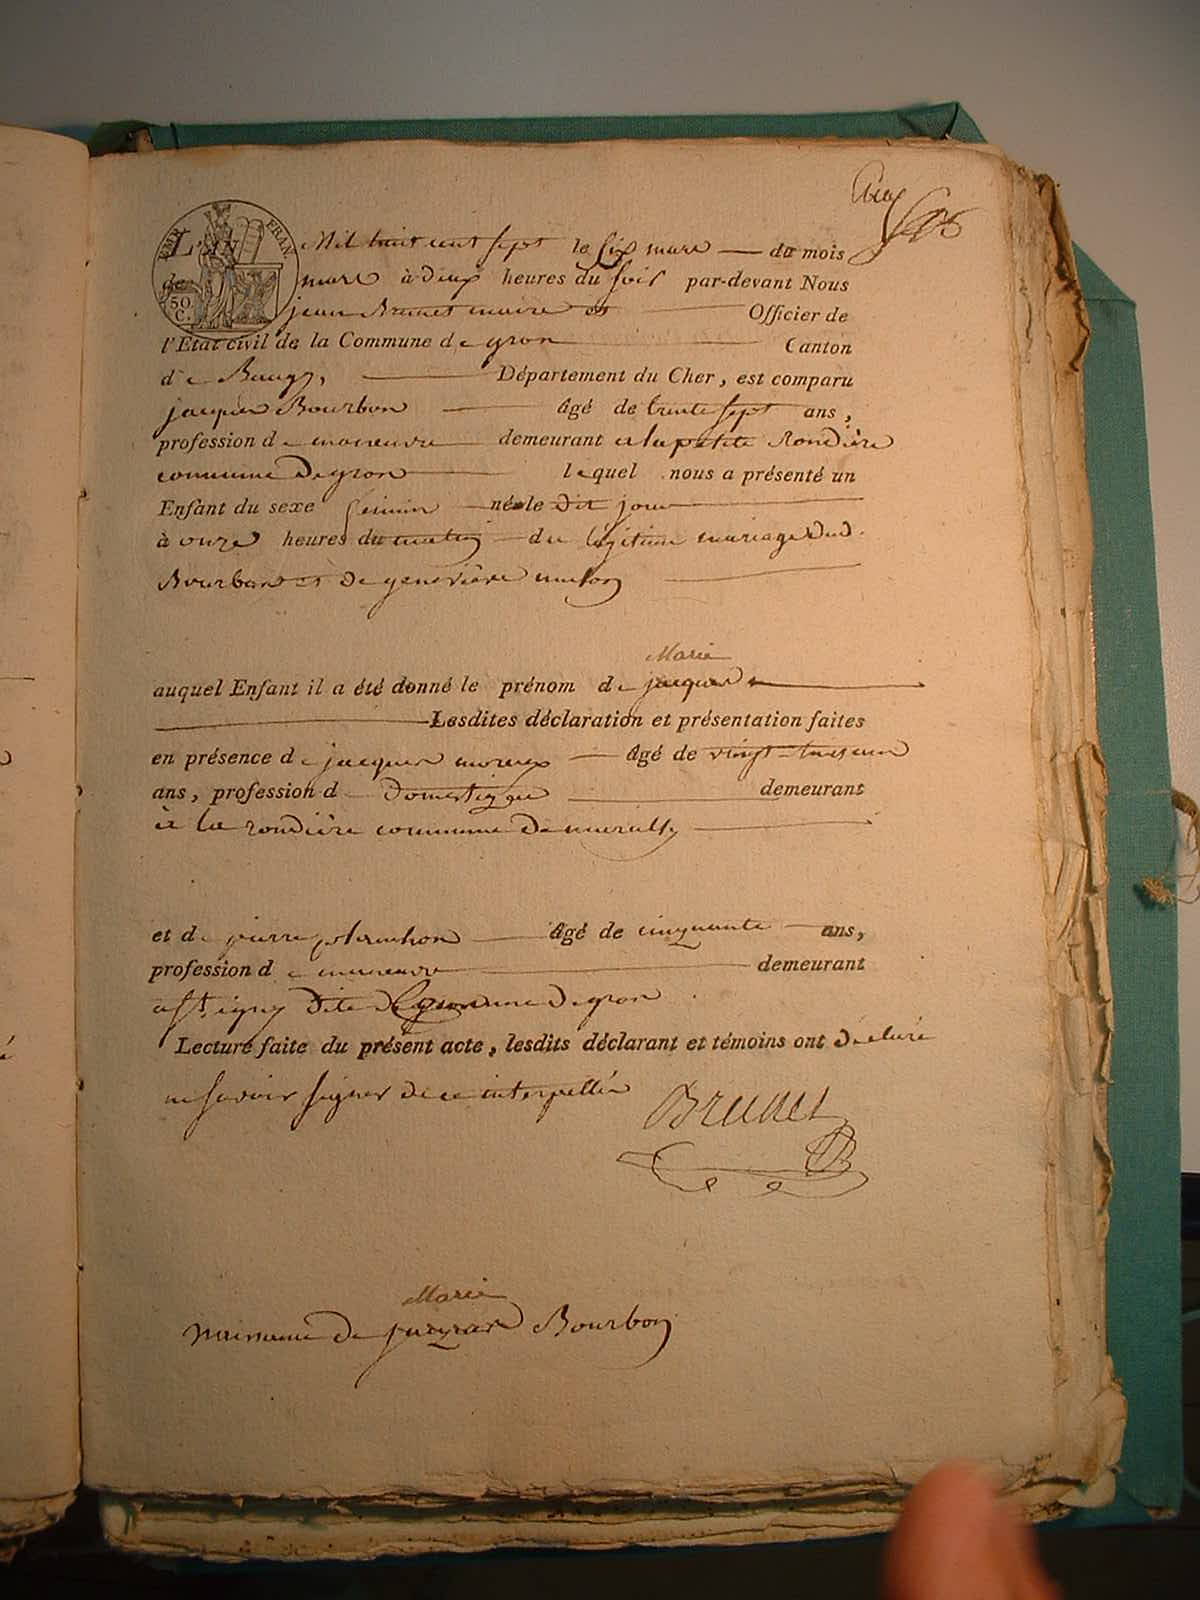 EMP. FRAN.
50 C.
L'AN Mil huit cent sept le six mars du mois
de mars à deux heures du soir par-devant Nous
jean Brunet maire et Officier de
l'Etat civil de la Commune de gron Canton
de Baugy, Département du Cher, est comparu
jacques Bourbon âgé de trente sept ans,
profession de manœuvre demeurant a la petite Rondière
commune De gron lequel nous a présenté un
Enfant du sexe feminin né le dit jour
à onze heures du matin du legitime mariage dud.
Bourbon et de genevieve
Marie
auquel Enfant il a été donné le prénom de jacques
Lesdites déclaration et présentation faites
en présence de jacques moreux âgé de vingt
ans, profession d Domestique demeurant
à la rondière commune De
et de pierre âgé de cinquante ans,
profession de manœuvre demeurant
commune De gron
Lecture faite du présent acte, lesdits déclarant et témoins ont déclaré
ne savoir signer de ce interpellés
Brunet
Marie
naissance de jacques Bourbon